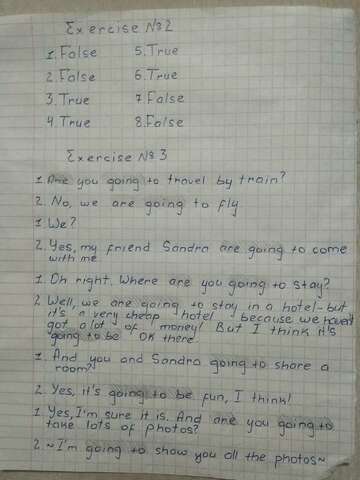 Exercise №2
1. False 5. True
2. False 6. True
3. True 7. False
4. True 8. False
Exercise №3
1. Are you going to travel by train?
2. No, we are going to fly
1. We?
2. Yes, my friend Sandra are going to come
with me.
1. Oh right. Where are you going to stay?
2. Well, we are going to stay in a hotel - but
it's a very cheap hotel - because we haven't
got a lot of money! But I think it's
going to be OK there.
1. And you and Sandra going to share a
room?
2. Yes, it's going to be fun, I think!
1. Yes, I'm sure it is. And are you going to
take lots of photos?
2. ~ I'm going to show you all the photos ~